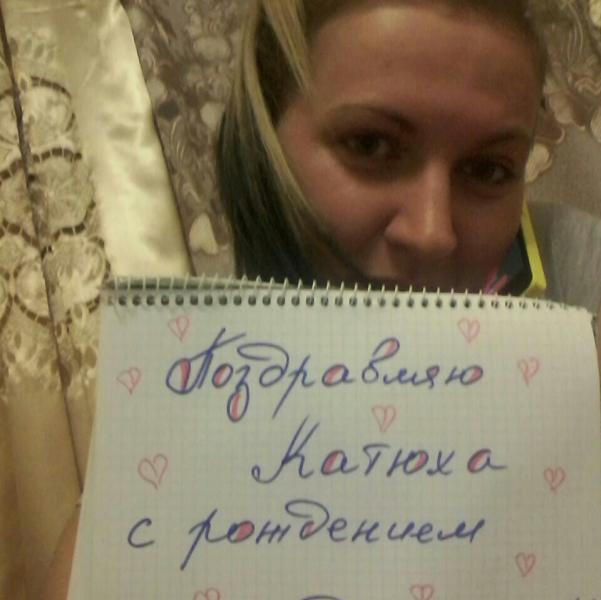 Поздравляю
Катюха
с рождением